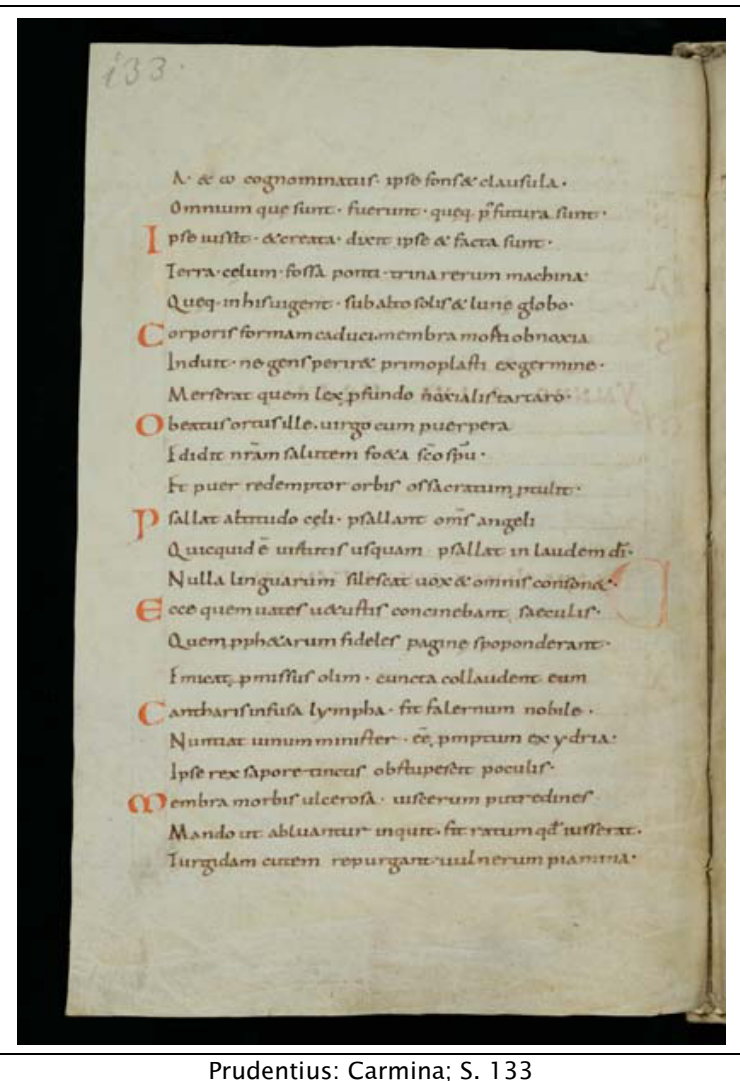 133.
Λ· & ω cognominatus· ipse fons & clausula·
Omnium quę sunt· fuerunt· queq. p̄ futura sunt·
Ipse iussit· & creata· dixit ipse & facta sunt·
Terra· celum· fossa ponti· trina rerum machina·
Queq· in his uigent· sub alto solis & lunę globo·
Corporis formam caduci· membra morti obnoxia
Induit· ne gens perir& primoplasti ex germine·
Merserat quem lex pfundo noxialis tartaro·
O beatus ortus ille· uirgo cum puerpera
Edidit nr̄am salutem fo&a sc̄o sp̄u·
Et puer redemptor orbis os sacratum ptulit·
Psallat altitudo cęli· psallant om̄s angeli
Quicquid ē uirtutis usquam psallat in laudem dī·
Nulla linguarum silescat uox & omnis conson&·
Ecce quem uates u&ustis concinebant saeculis·
Quem pph&arum fideles pagine spoponderant·
Emicat pmissus olim· cuncta collaudent eum
Cantharis infusa lympha· fit falernum nobile·
Nuntiat uinum minister· eē pmptum ex ydria·
Ipse rex sapore tinctis obstupescit poculis·
Membra morbis ulcerosa· uiscerum putredines
Mando ut abluantur inquit· fit ratum qđ iusserat·
Turgidam cutem repurgant uulnerum piamina·
Prudentius: Carmina; S. 133